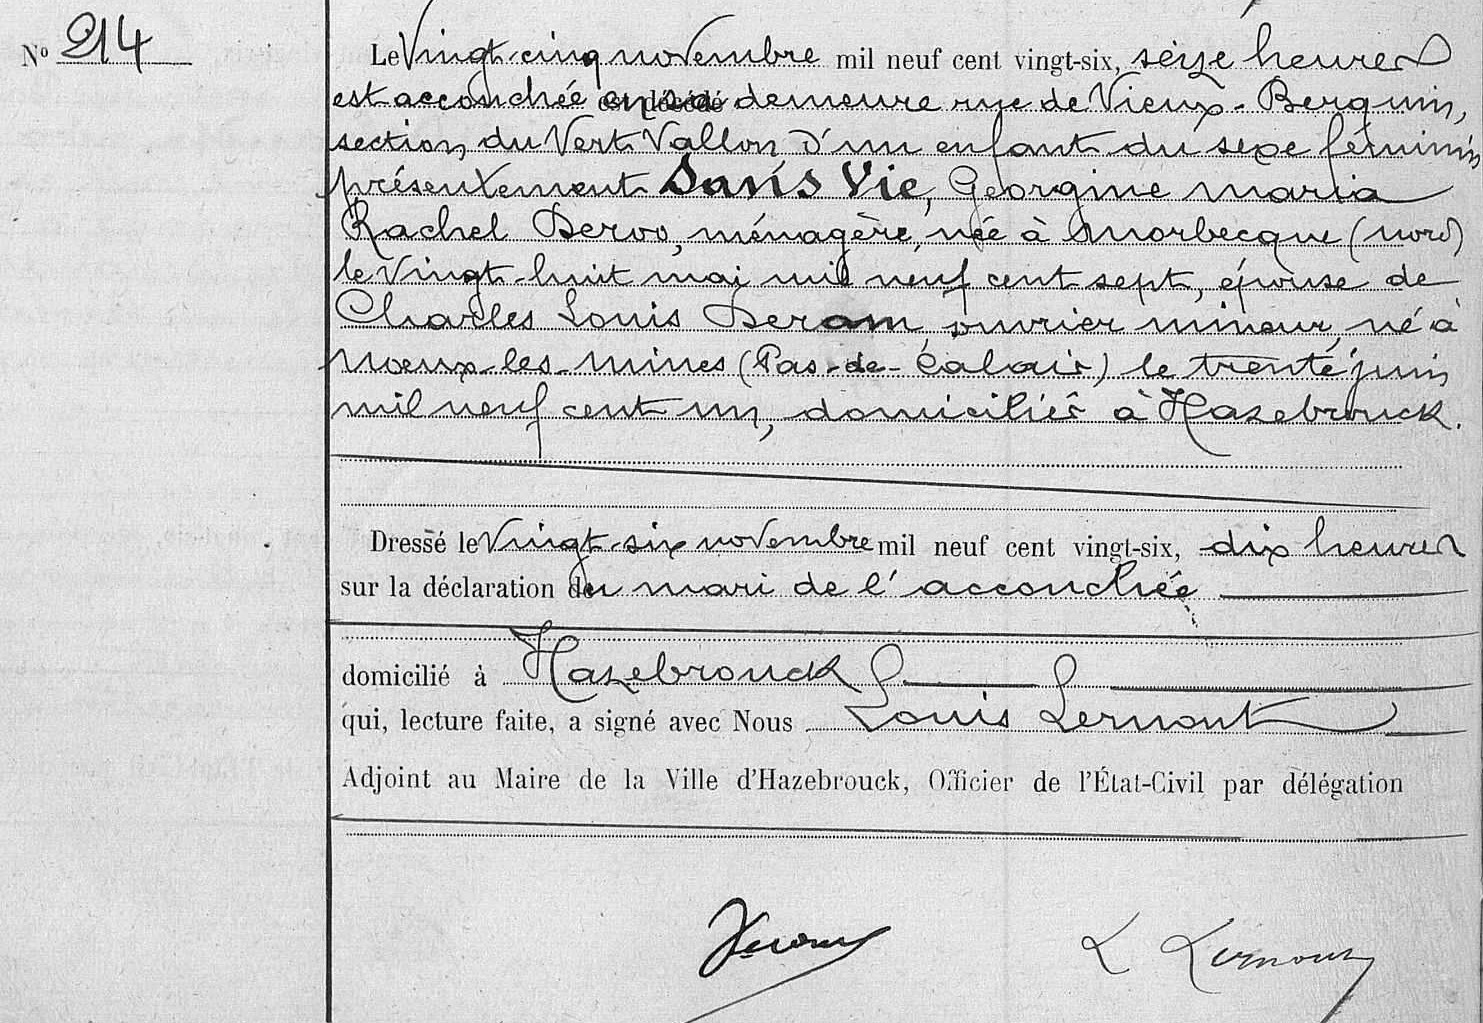 N° 214
Le Vingt-cinq novembre mil neuf cent vingt-six, seize heures
est accouchée en sa demeure rue de Vieux-Berquin,
section du Vert Vallon, D'un enfant du sexe féminin
présentement Sans Vie, Georgine Maria
Rachel Dervo, ménagère, née à Morbecque (Nord)
le Vingt-huit mai mil neuf cent sept, épouse de
Charles Louis Deram, ouvrier mineur, né à
Noeux-les-Mines (Pas-de-Calais) le trente juin
mil neuf cent un, domiciliés à Hazebrouck.
Dressé le Vingt-six novembre mil neuf cent vingt-six, dix heures
sur la déclaration du mari de l'accouchée
domicilié à Hazebrouck
qui, lecture faite, a signé avec Nous Louis Lernout
Adjoint au Maire de la Ville d'Hazebrouck, Officier de l'État-Civil par délégation
L Lernout